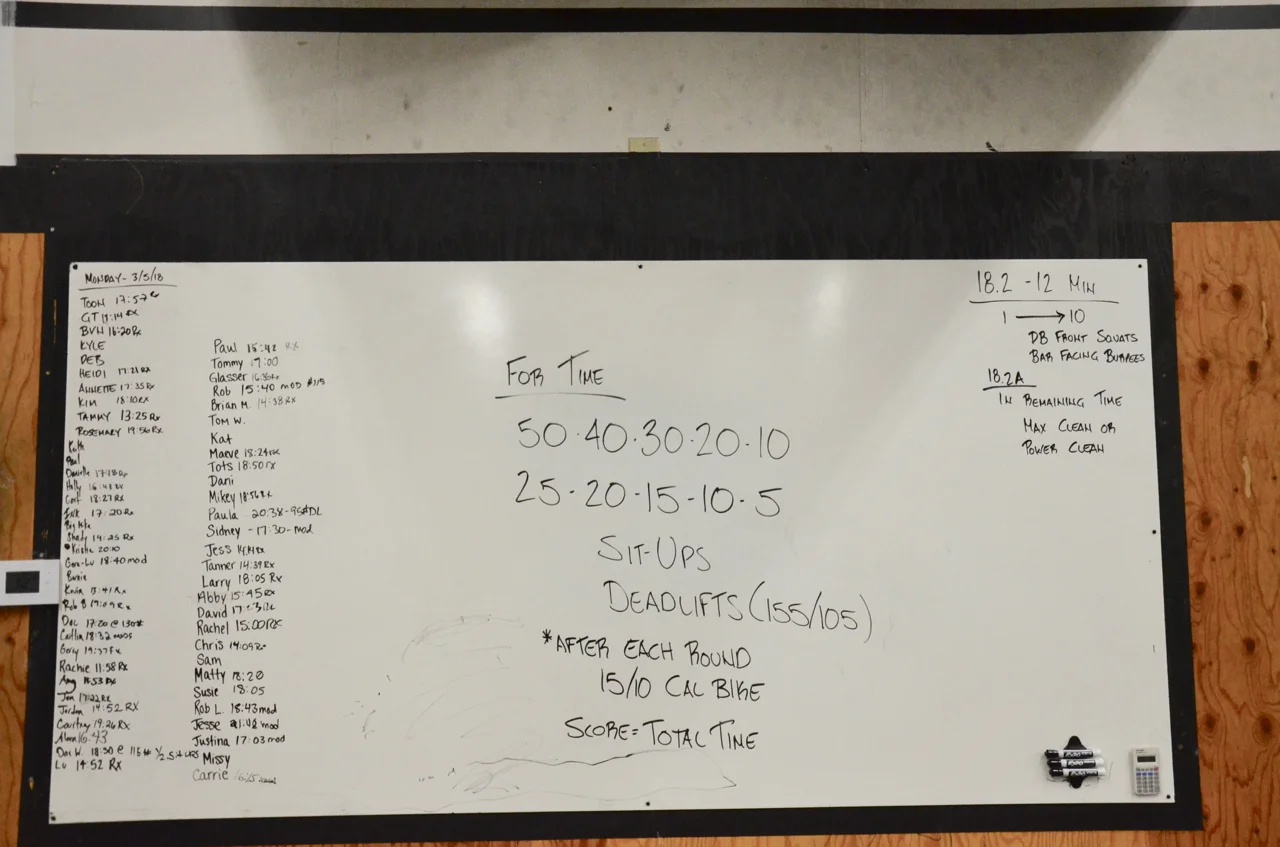 MONDAY - 3/5/18
TOOM 17:57
GT
BVH 16:20 Rx
KYLE
DEB
HEIDI 17:21 RX
ANNETTE 17:35 Rx
KIM 18:10 RX
TAMMY 13:25 Rx
ROSEMARY 19:56 Rx
Danielle
Holly
18:27 Rx
17:20 Rx
Shady 14:25 Rx
Kristie 20:10
18:40 mod
Kevin
Rob B 17:09 Rx
Doc 17:20 @ 130#
Caitlin 18:32 mods
Gory
Rachie 11:58 Rx
Ang
Jen 17:22 Rx
Jordan 14:52 RX
Courtney 19:26 Rx
16:43
Doc W. 18:30 @ 115#
Lu 14:52 Rx
Paul 15:42 RX
Tommy 17:00
Glasser
Rob 15:40 mod
Brian M. 14:38 RX
TOM W.
Kat
Maeve 18:24 Rx
Tots 18:50 rx
Dani
Mikey 18:56 Rx
Paula 20:38 - 95# DL
Sidney - 17:30 - mod
Jess
Tanner 14:39 Rx
Larry 18:05 Rx
Abby 15:45 Rx
David
Rachel 15:00 RX
Chris 14:09 Rx
Sam
Matty 18:20
Susie 18:05
Rob L. 18:43 mod
Jesse mod
Justina 17:03 mod
Missy
Carrie
FOR TIME
50·40·30·20·10
25-20-15-10-5
SIT-UPS
DEADLIFTS (155/105)
*AFTER EACH ROUND
15/10 CAL BIKE
SCORE = TOTAL TIME
18.2 - 12 MIN
1 → 10
DB FRONT SQUATS
BAR FACING BURPEES
18.2A
IN REMAINING TIME
MAX CLEAN OR
POWER CLEAN
EXPO
EXPO
EXPO